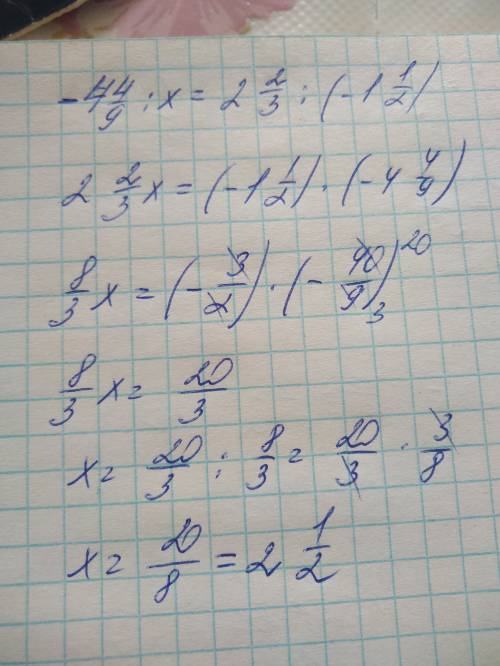 -4 4/9 : x = 2 2/3 : (-1 1/2)
2 2/3 x = (-1 1/2) · (-4 4/9)
8/3 x = (-3/2) · (-40/9) 20 3
8/3 x = 20/3
x = 20/3 : 8/3 = 20/3 · 3/8
x = 20/8 = 2 1/2